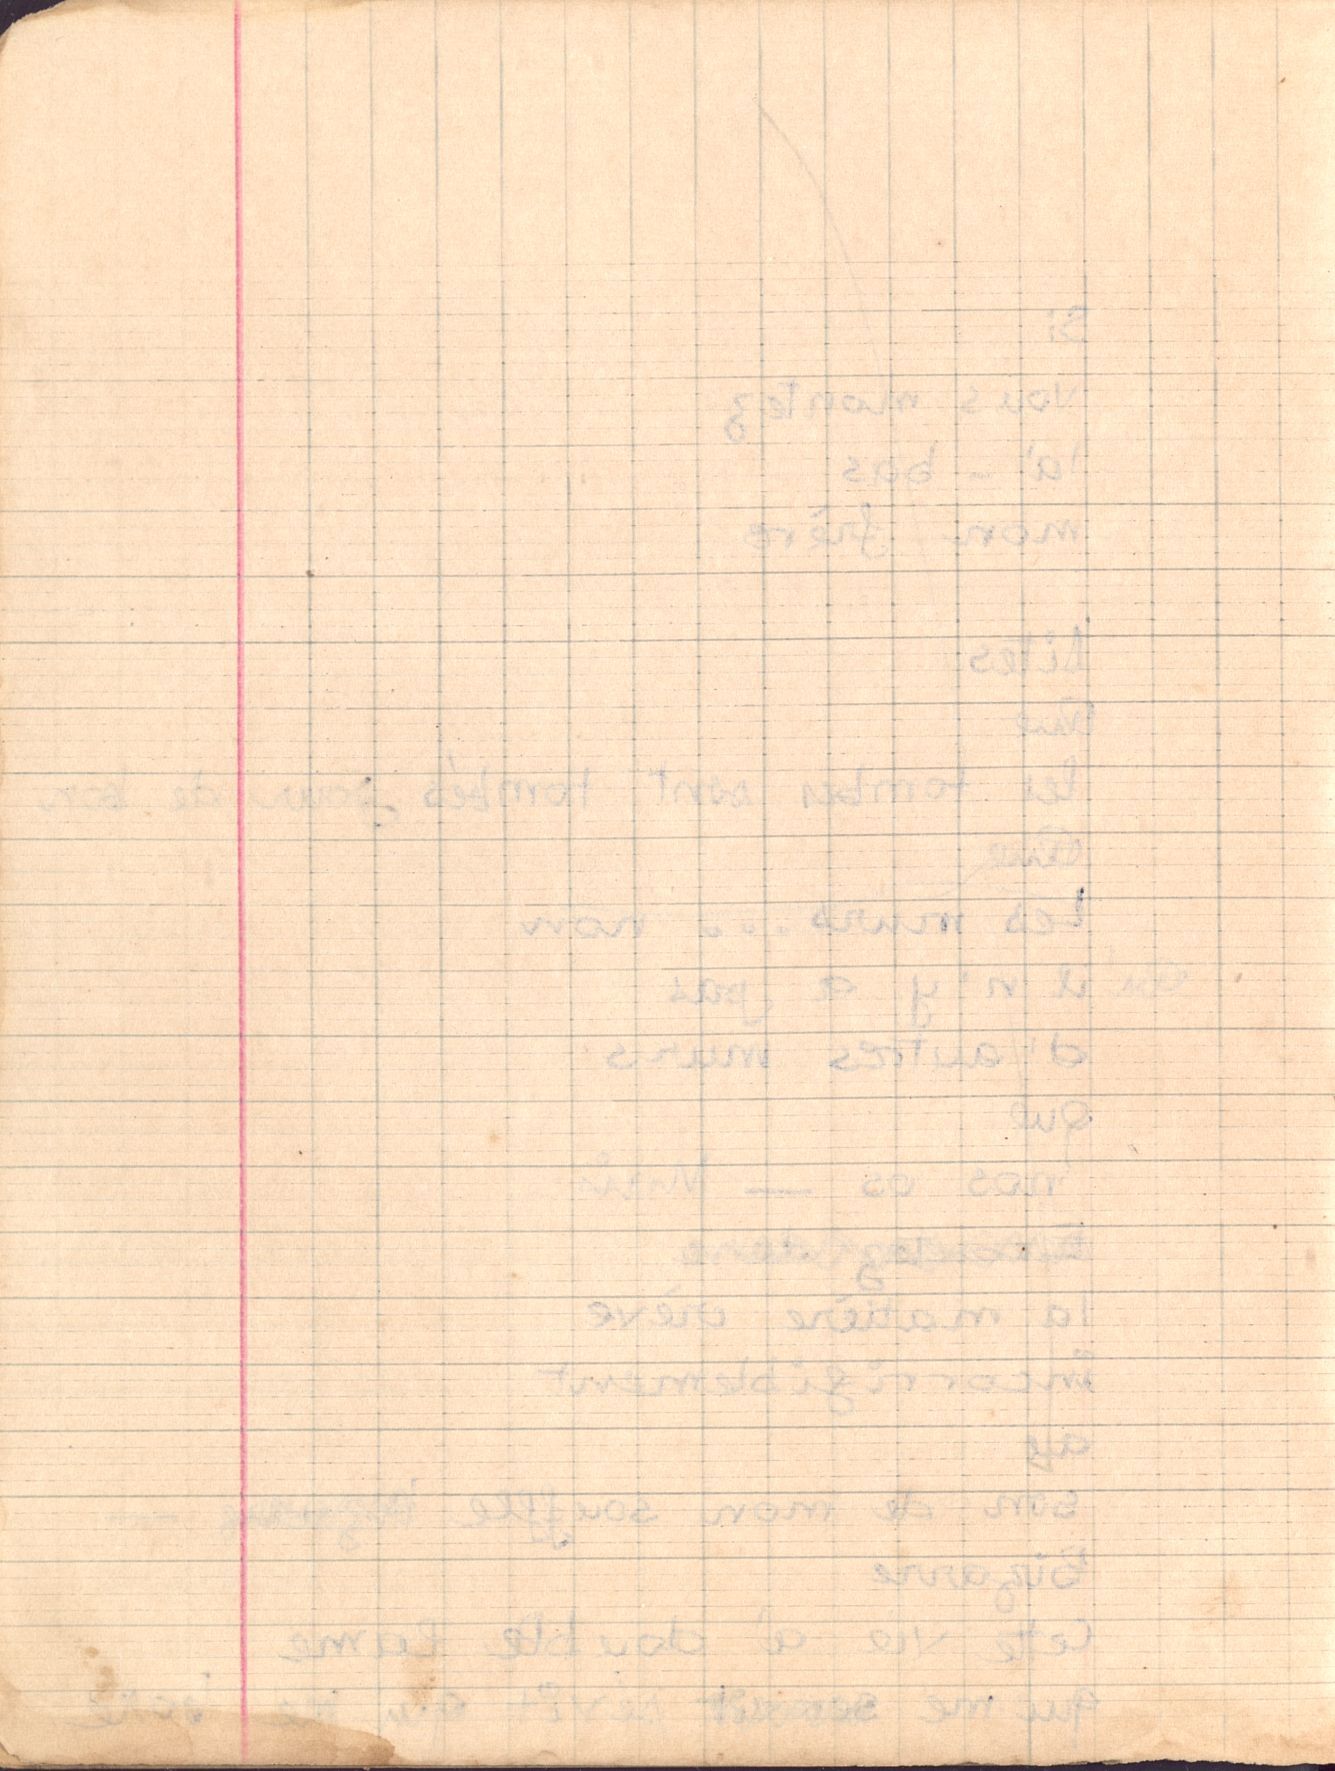 Si
vous montez
là - bas
mon frère
Dites
Que
les tombes sont tombés pour de bon
Que
Les murs ... non
Qu'il n'y a pas
d'autres murs
que
nos os —
la matière crève
incorrigiblement
au
son de mon souffle
Bizarre
Cette vie à double lame
qui me